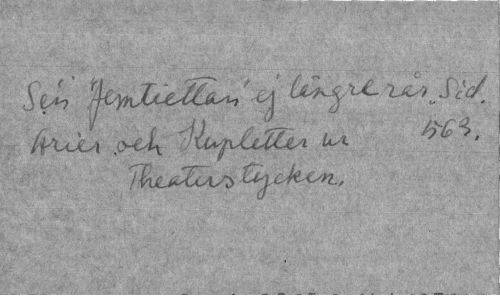 Se'n "Jemtiettan" ej längre rår. Sid. 563.
Arier och Kupletter ur
Theaterstycken.